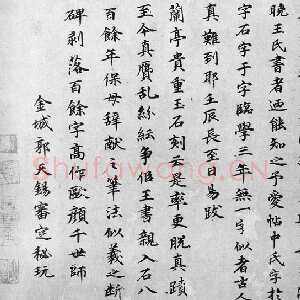 晚王氏書者迺能知之予愛帖中氏字於
字石字于字臨學三年無一字似者古人
真難到耶壬辰長至日易跋
蘭亭貴重玉石刻云是率更脫真蹟
至今真贋亂紛紜爭王書親入石八
百餘年保母辭獻之筆法似羲之斷
碑剥落百餘字高仰歐顏千世師
金城郭天錫審定秘玩